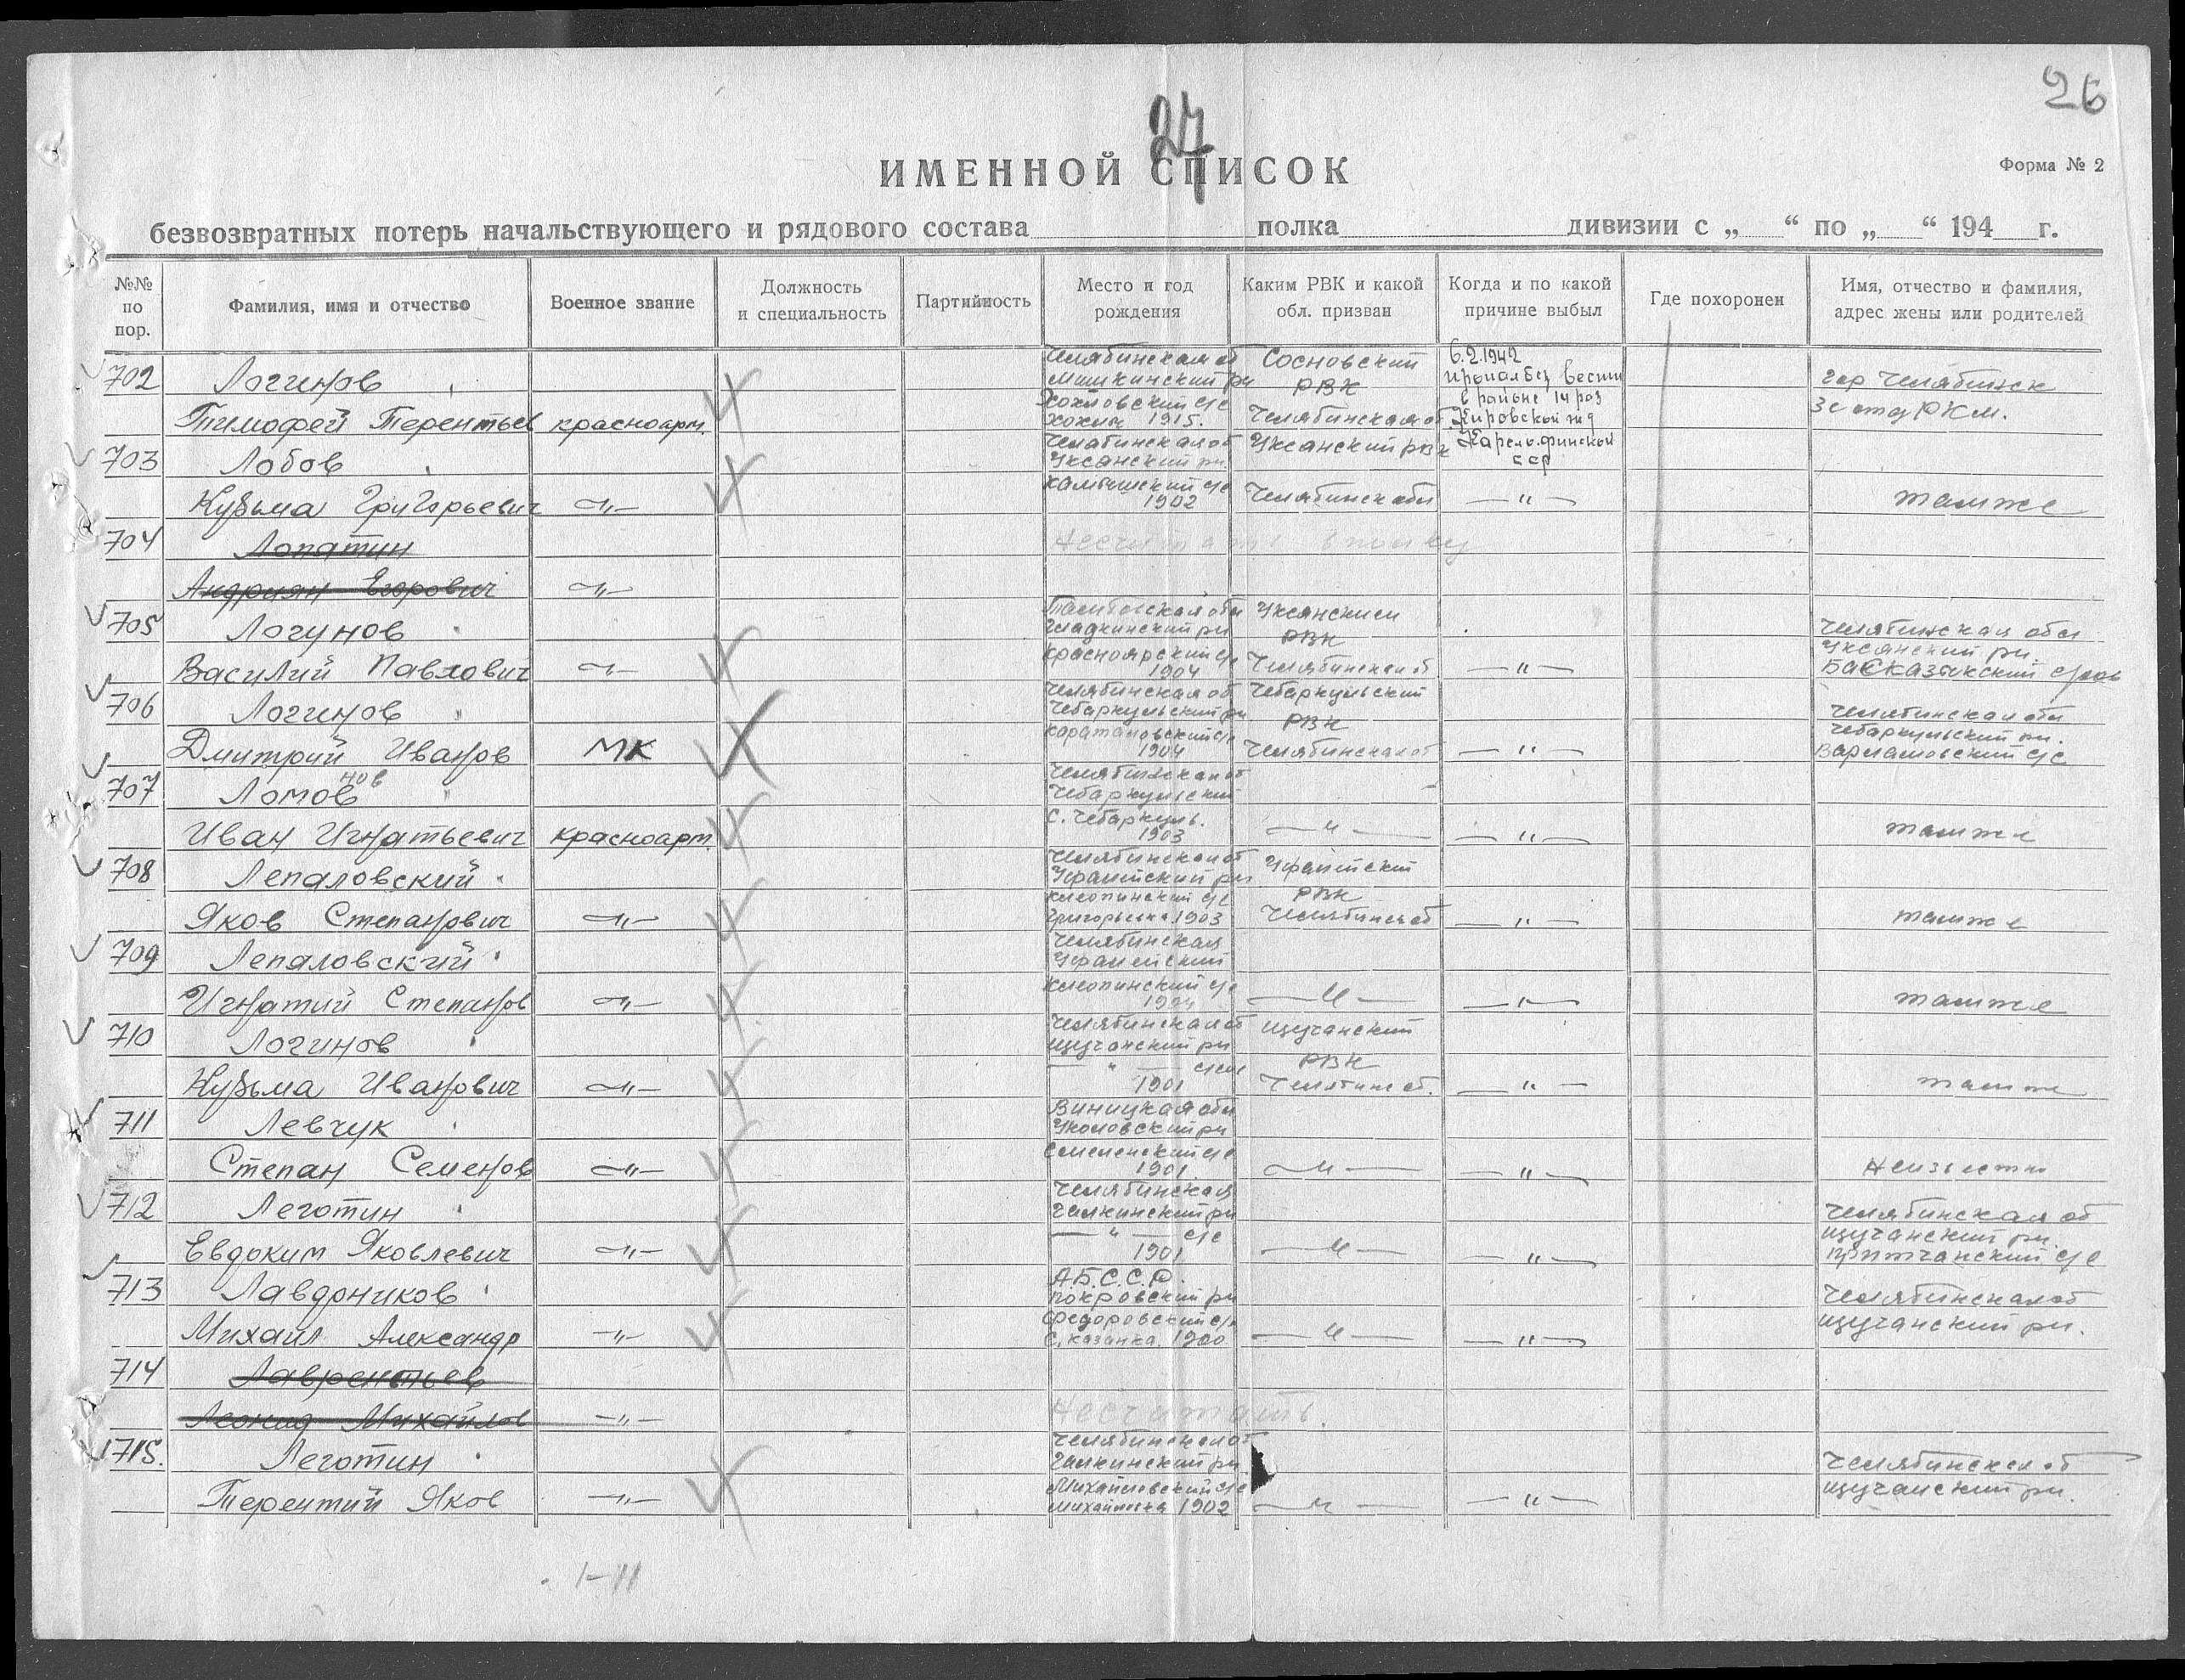 26
27
ИМЕННОЙ СПИСОК
Форма № 2
безвозвратных потерь начальствующего и рядового состава полка дивизии с „ “ по „ “ 194 г.
№№ по пор.
Фамилия, имя и отчество
Военное звание
Должность и специальность
Партийность
Место и год рождения
Каким РВК и какой обл. призван
Когда и по какой причине выбыл
Где похоронен
Имя, отчество и фамилия, адрес жены или родителей
702 Логинов
Тимофей Терентьев красноарм.
Челябинская об
Мишкинский рн
Хохловский с/с
1915.
Сосновский
РВК
Челябинская об.
6.2.1942
Пропал без вести
в районе 14 раз
Кировской жд
Карело-финской
сср
гор Челябинск
703 Лобов
Кузьма Григорьевич —"—
Челябинская об
Уксянский рн.
1902
Уксянский рвк
Челябинск обл
—"—
там же
704 Лопатин
Андриян Егорович —"—
705 Логунов
Василий Павлович —"—
Красноярский с/с
1904
Уксянский
РВК
Челябинская об
—"—
Челябинская обл
Уксянский рн.
706 Логинов
Дмитрий Иванов МК
Челябинская об
Чебаркульский рн
1904
Чебаркульский
РВК
Челябинская об
—"—
Челябинская обл
Чебаркульский рн.
Варламовский с/с
707 Ломов
нов
Иван Игнатьевич красноарм.
Челябинская об
Чебаркульский
с. Чебаркуль.
1903
—"—
—"—
там же
708 Лепаловский
Яков Степанович —"—
Челябинская об
Уфалейский рн
1903
Уфалейский
РВК
Челябинск об
—"—
там же
709 Лепаловский
Игнатий Степанов —"—
Челябинская
Уфалейский
—"—
—"—
там же
710 Логинов
Кузьма Иванович —"—
Челябинская об
Щучанский рн
—"—
1901
Щучанский
РВК
Челябинс об.
—"—
там же
711 Левчук
Степан Семенов —"—
Виницкая обл
1901
—"—
—"—
Неизвестно
712 Леготин
Евдоким Яковлевич —"—
Челябинская
Галкинский рн
—"— с/с
1901
—"—
—"—
Челябинская об
Щучанский рн.
713 Лавдоников
Михаил Александр —"—
А.Б.С.С.Р.
Покровский рн
Федоровский с/с
с. Казанка. 1900
—"—
—"—
Челябинская об
Щучанский рн.
714 Лаврентьев
Леонид Михайлов —"—
Несчитать.
715. Леготин
Терентий Яков —"—
Челябинская об
Галкинский рн
Михайловский с/с
Михайловка 1902
—"—
—"—
Челябинская об
Щучанский рн.